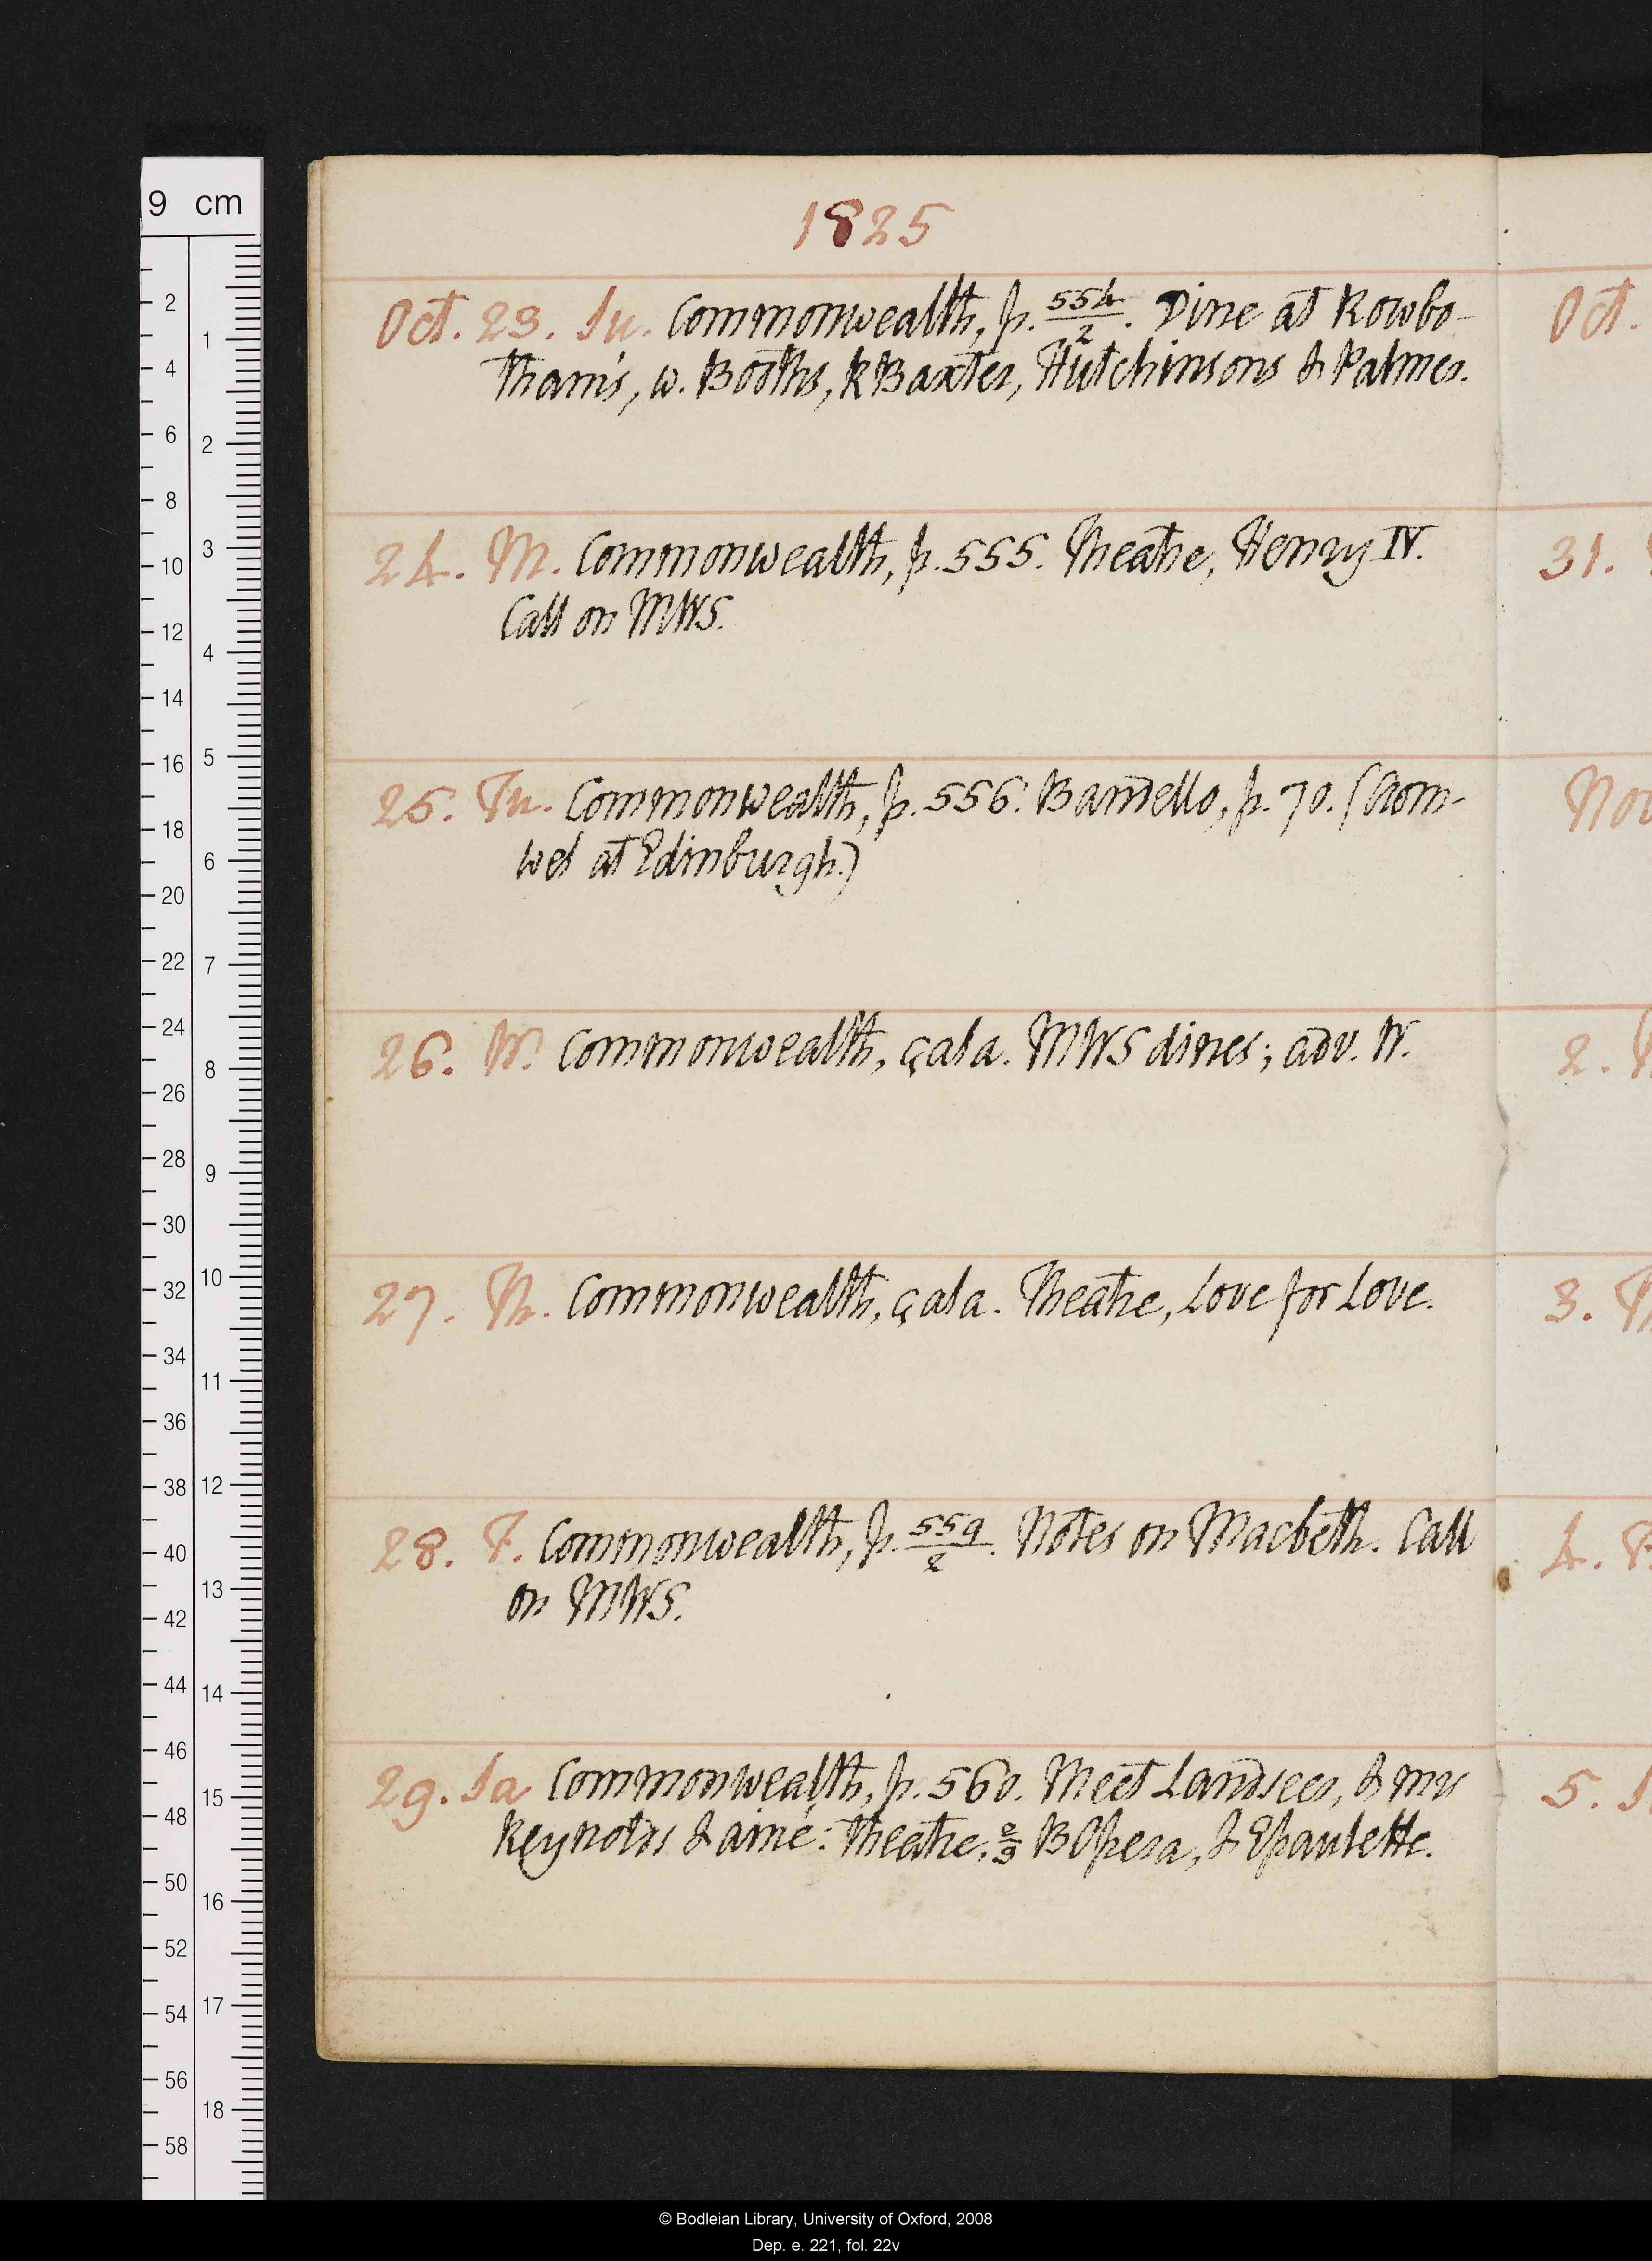 1825
Oct. 23. Su. Commonwealth, p. 554/2. Dine at Rowbo-
tham's, w. Booths, R Baxter, Hutchinsons & Palmer.
24. M. Commonwealth, p. 555. Theatre, Henry IV.
Call on MWS.
25. Tu. Commonwealth, p. 556. Bandello, p. 70. (Crom-
wel at Edinburgh.)
26. W. Commonwealth, çala. MWS dines; adv. W.
27. Th. Commonwealth, çala. Theatre, Love for Love.
28. F. Commonwealth, p. 559/2. Notes on Macbeth. Call
on MWS.
29. Sa Commonwealth, p. 560. Meet Landseer, & mrs
Reynolds & ainé: Theatre, 2/3 B Opera, & Epaulette.
Oct.
31.
Nov
2.
3. Th
4. F
5. S
9 cm
2 4 6 8 10 12 14 16 18 20 22 24 26 28 30 32 34 36 38 40 42 44 46 48 50 52 54 56 58
1 2 3 4 5 6 7 8 9 10 11 12 13 14 15 16 17 18
© Bodleian Library, University of Oxford, 2008
Dep. e. 221, fol. 22v